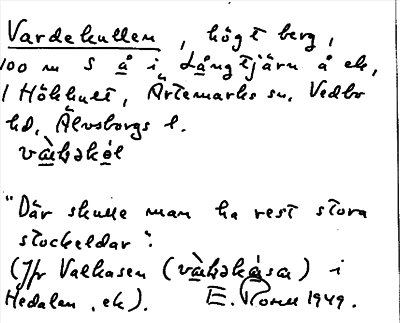 Vardekullen, högt berg,
100 m S å i Långtjärn å ek,
1 Hökhult, Ärtemarks sn, Vedbo
hd, Älvsborgs l.
"Där skulle man ha rest stora
stockeldar".
(Jfr Valkasen i
Hedalan, ek). E. 1949.